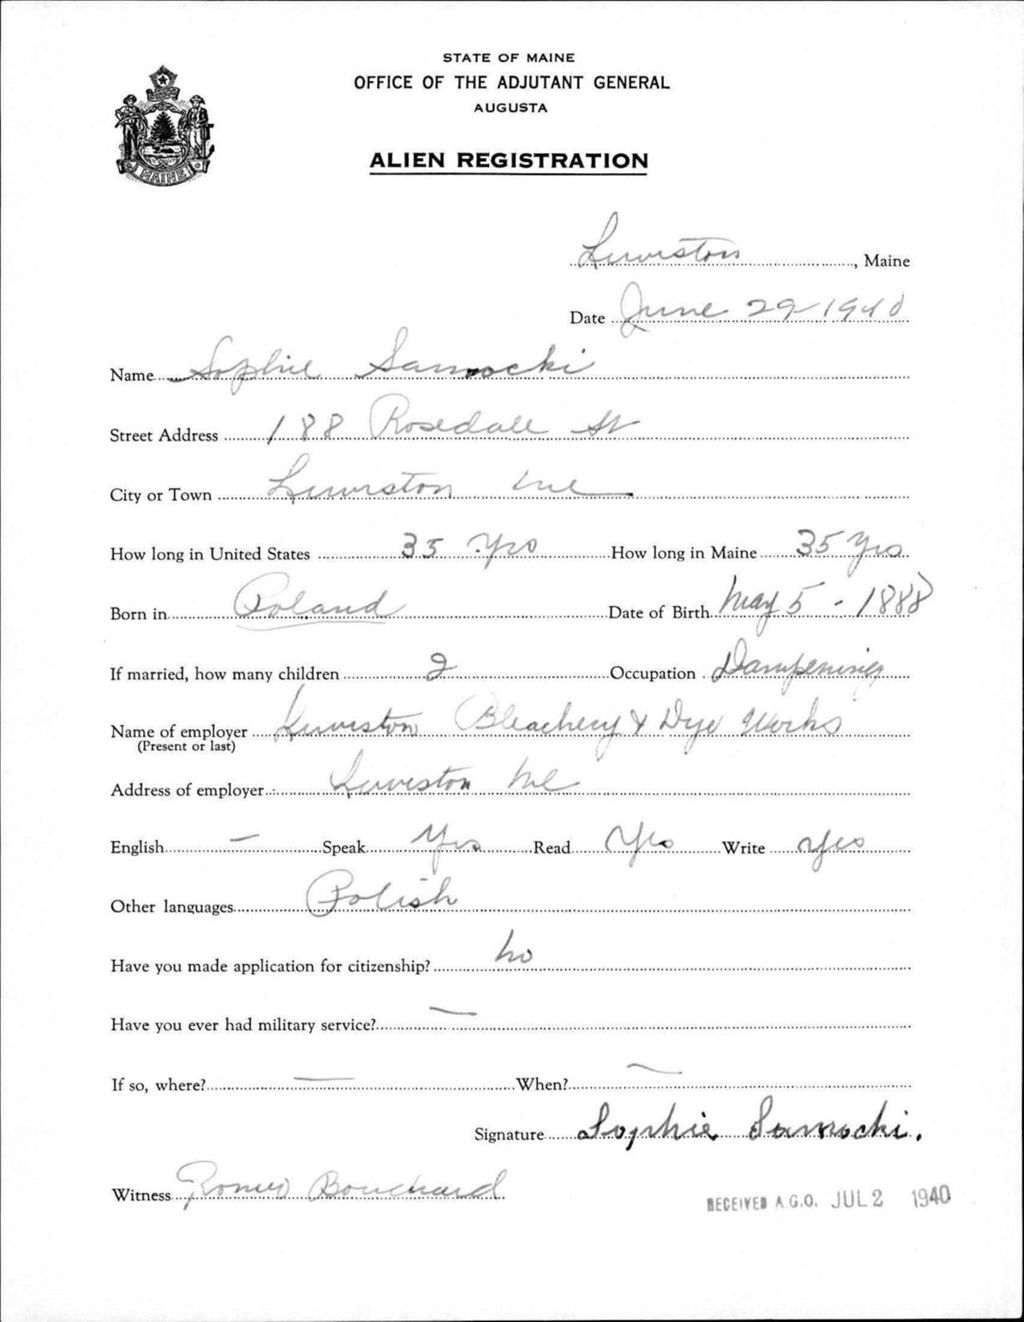 STATE OF MAINE
OFFICE OF THE ADJUTANT GENERAL
AUGUSTA
MAINE
ALIEN REGISTRATION
Lewiston, Maine
Date June 29-1940
Name Sophie Samocki
Street Address 188 Rosedale St
City or Town Lewiston Me
How long in United States 35 Yrs How long in Maine 35 Yrs
Born in Poland Date of Birth May 5 - 1888
If married, how many children 2 Occupation Dampening
Name of employer Lewiston Bleachery & Dye Works
(Present or last)
Address of employer Lewiston Me
English — Speak Yes Read Yes Write Yes
Other languages Polish
Have you made application for citizenship? no
Have you ever had military service? —
If so, where? — When? —
Signature Sophie Samocki.
Witness Romeo Bouchard
RECEIVED A.G.O. JUL 2 1940